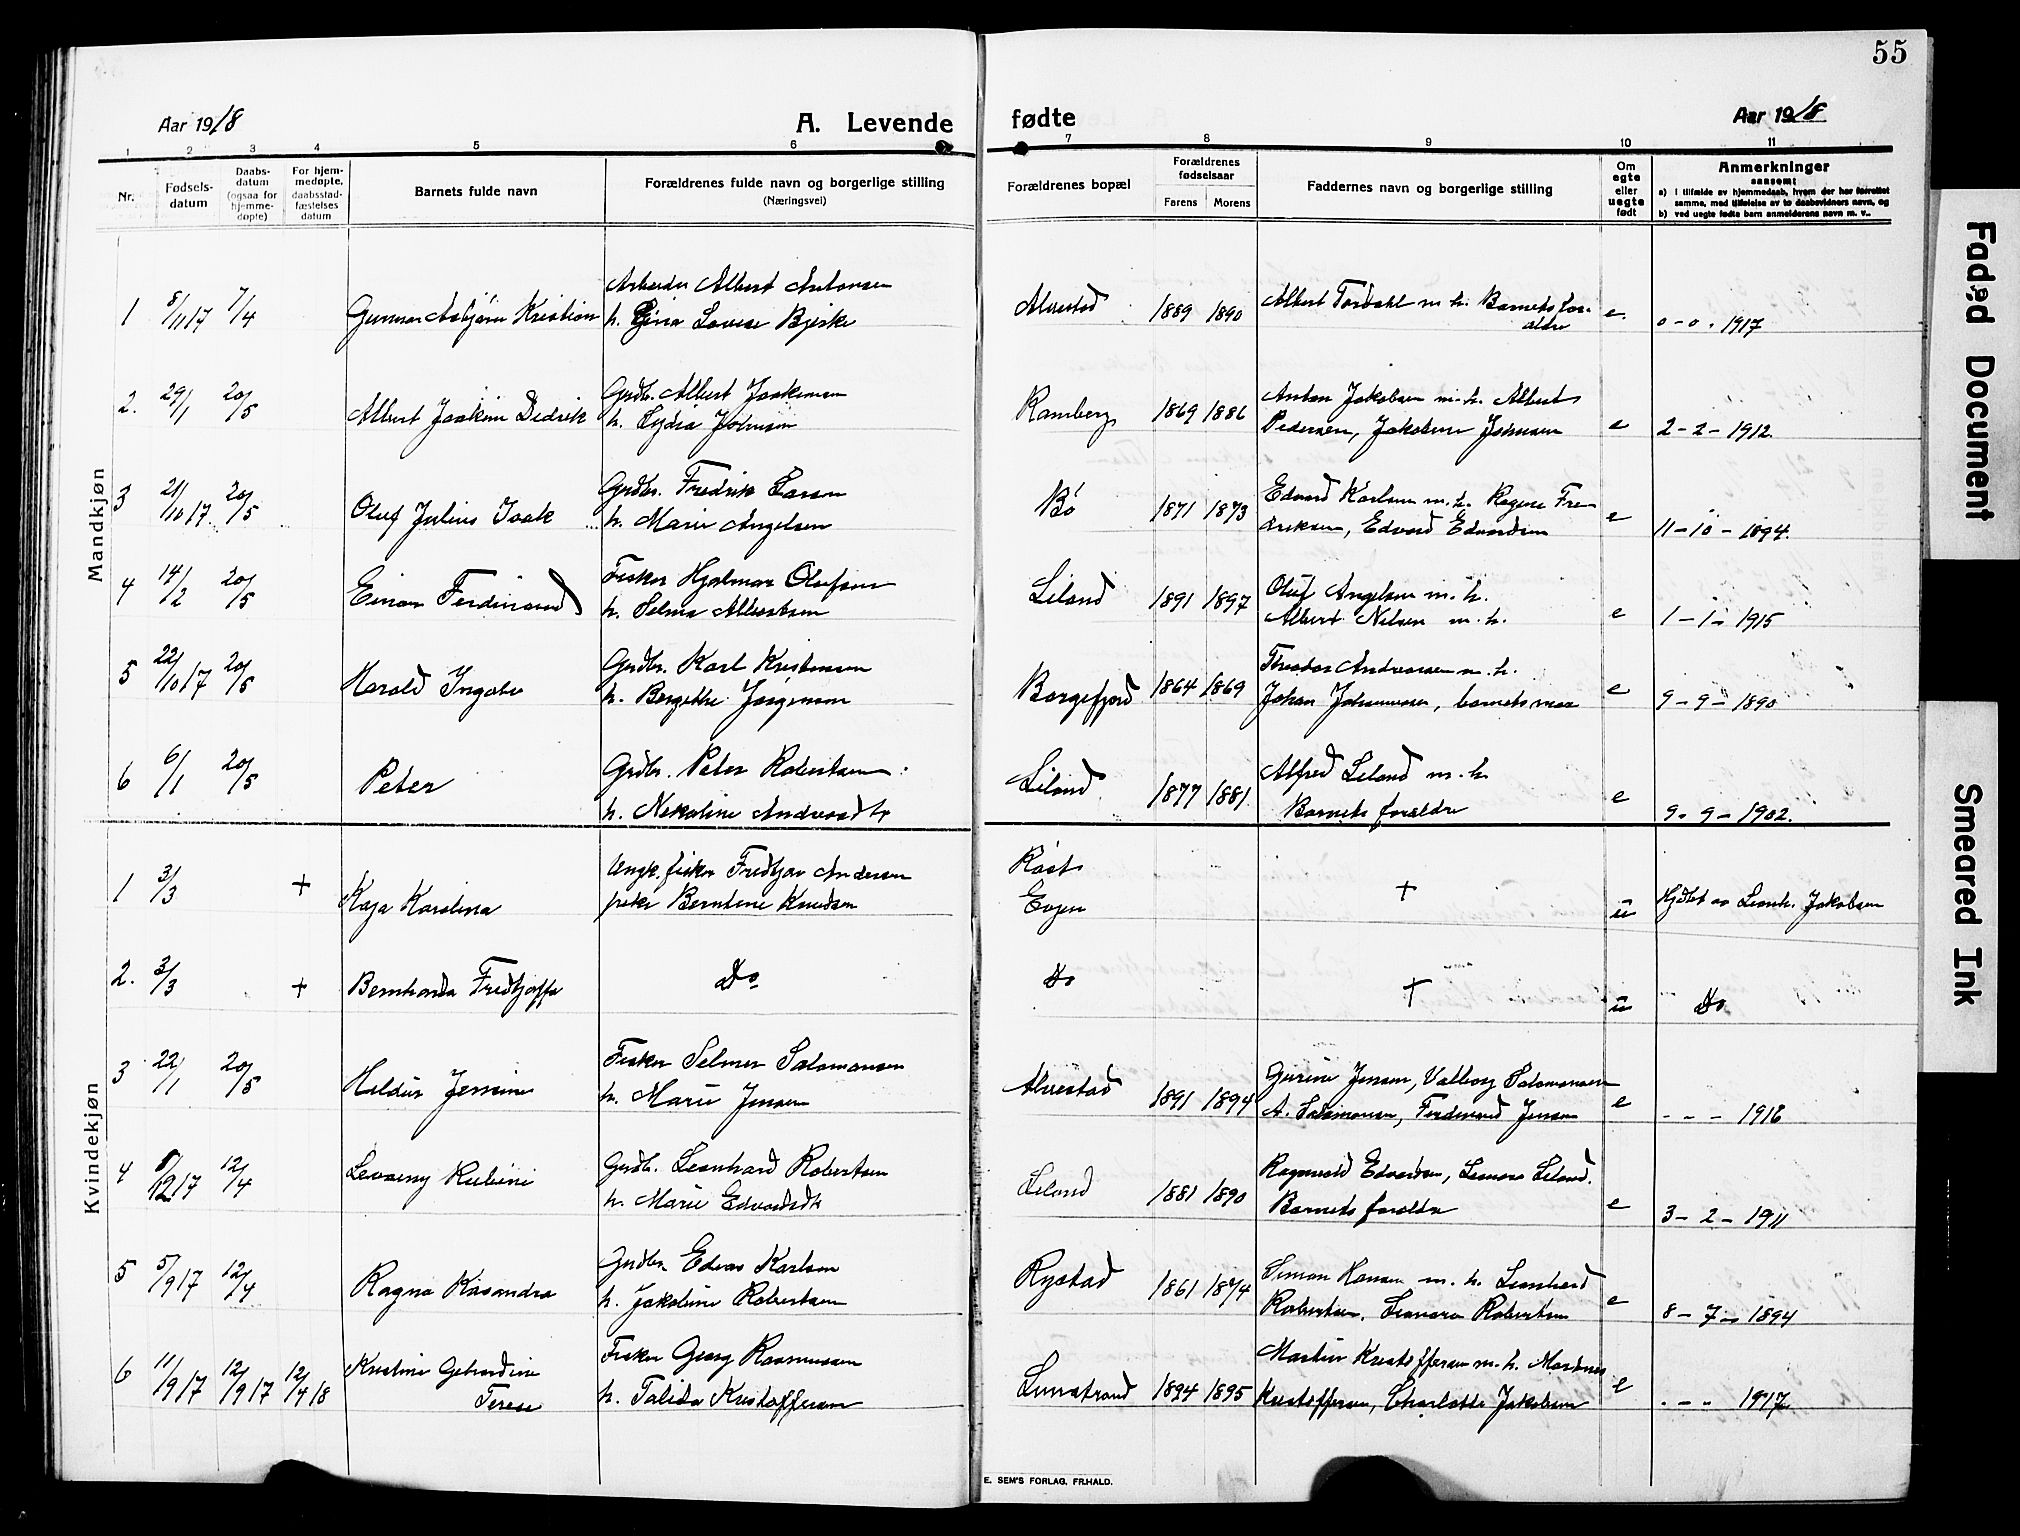 55
Aar 1918
A. Levende fødte
Aar 1918
1 2 3 4 5 6 7 8 9 10 11
Nr.
Fødsels-
datum
Daabs-
datum
(ogsaa for
hjemme-
døpte)
For hjem-
medøpte,
daabsstad-
fæstelses
datum
Barnets fulde navn
Forældrenes fulde navn og borgerlige stilling
(Næringsvei)
Forældrenes bopæl
Forældrenes
fødselsaar
Farens Morens
Faddernes navn og borgerlige stilling
Om
egte
eller
uegte
født
Anmerkninger
saasom:
a) i tilfælde av hjemmedaab, hvem der har forrettet
samme, med tilføielse av to daabsvidners navn, og
b) ved uegte fødte barn anmelderens navn m. v..
Mandkjøn
1 8/11 17 7/4 Gunnar Asbjörn Kristian
Arbeider Albert Antonsen
h. Gina Lovise Bjerke
1889 1890
Albert Tordahl m. h. Barnets for-
ældre
e. 0 - 0 - 1917
2. 29/1 20/5 Albert Joakim Didrik
Grdbr. Albert Joakimsen
h. Lydia Johnsen
Ramberg 1869 1886
Anton Jakobsen m. h. Albert
Pedersen, Jakobine Johnsen
e 2 - 2 - 1912.
3 21/10 17. 20/5 Oluf Julius Isak
Grdbr. Fredrik Larsen
h. Marie Angelsen
Bö 1871 1873
Edvard Karlsen m. h. Ragna Fre-
driksen, Edvard Edvardsen
e 11 - 10 - 1894.
4 14/2 20/5 Einar Ferdinand
Fisker Hjalmar Olufsen
h. Selma Albertsen
Leland 1891 1897
Oluf Angelsen m. h.
Albert Nilsen m. h.
e 1 - 1 - 1915
5 22/10 17 20/5 Harald Ingolv
Grdbr. Karl Kristensen
h. Bergitte Jörgensen
Borgefjord 1864 1869
Theodor Andreassen m. h.
Johan Johannesen, barnets mor
e 9 - 9 - 1890
6 6/1 20/5 Peter
Grdbr. Peter Robertsen
h. Nekoline Andreasdtr
Leland 1877 1881.
Alfred Leland m. h.
Barnets forældre
e 9 - 9 - 1902.
Kvindekjøn
1 3/3 + Kaja Karolina
Ungk. fisker Fredtjov Andersen
pike Berntine Knudsen
Röst
Evjen
+ ü Hjdbt av Leonh. Jakobsen
2. 3/3 + Bernharda Fredtjoffa
Do
Do + ü Do
3 22/1 20/5 Heldur Jensine
Fisker Selmer Salomonsen
h. Marie Jensen
1891 1894
Gurine Jensen, Valborg Salomonsen
A. Salomonsen, Ferdinand Jensen
e - - - 1916
4 8/12 17 12/4
Grdbr. Leonhard Robertsen
h. Marie Edvardsdtr
Leland 1881 1890
Ragnvald Edvardsen, Leonora Leland.
Barnets forældre
e 3 - 2 - 1911
5 5/9 17 12/4 Ragna Kasandra
Grdbr. Edvard Karlsen
h. Jakobine Robertsen
Rystad 1861 1874
Simon Hansen m. h. Leonhard
Robertsen, Leonora Robertsen
e 8 - 7 - 1894
6 11/9 17 12/9 17 12/4 18 Kristine Gerhardine
Terese
Fisker Georg Rasmussen
h. Talida Kristoffersen
Lunstrand 1894 1895
Martin Kristoffersen m. h. Martines
Kristoffersen, Charlotte Jakobsen
e - - - 1917
E. SEM'S FORLAG, FR.HALD.
Faded Document
Smeared Ink